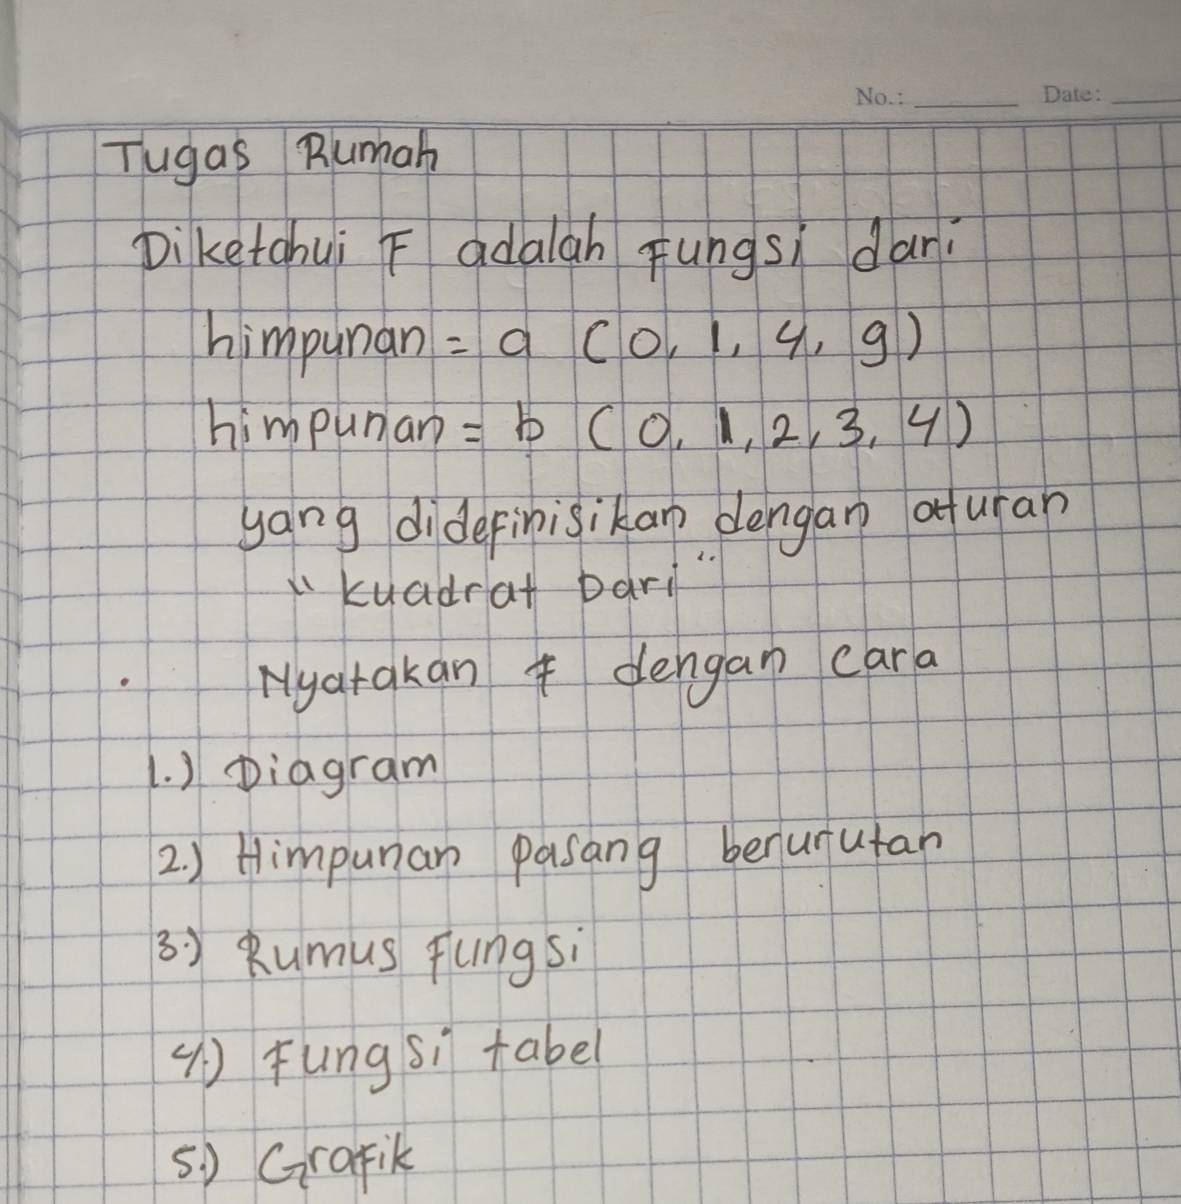 No.: Date:
Tugas Rumah
Diketahui F adalah Fungsi dari
himpunan = a (0, 1, 4, 9)
himpunan = b (0, 1, 2, 3, 4)
yang didefinisikan dengan aturan
"kuadrat Dari"
Nyatakan f dengan cara
1.) Diagram
2.) Himpunan pasang berurutan
3.) Rumus Fungsi
4.) Fungsi tabel
5.) Grafik